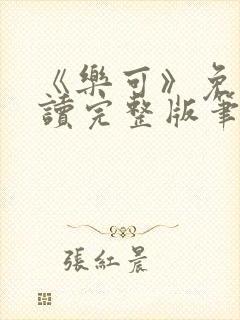 《樂可》免
讀完整版筆
張紅晨